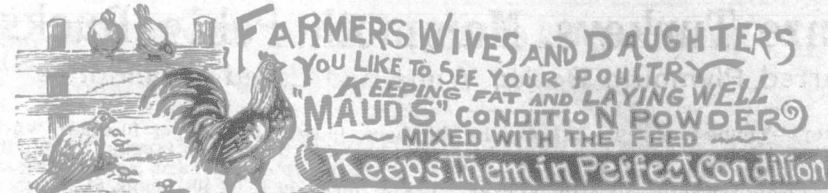 FARMERS WIVES AND DAUGHTERS
YOU LIKE TO SEE YOUR POULTRY
KEEPING FAT AND LAYING WELL
"MAUDS" CONDITION POWDER
MIXED WITH THE FEED
Keeps Them in Perfect Condition